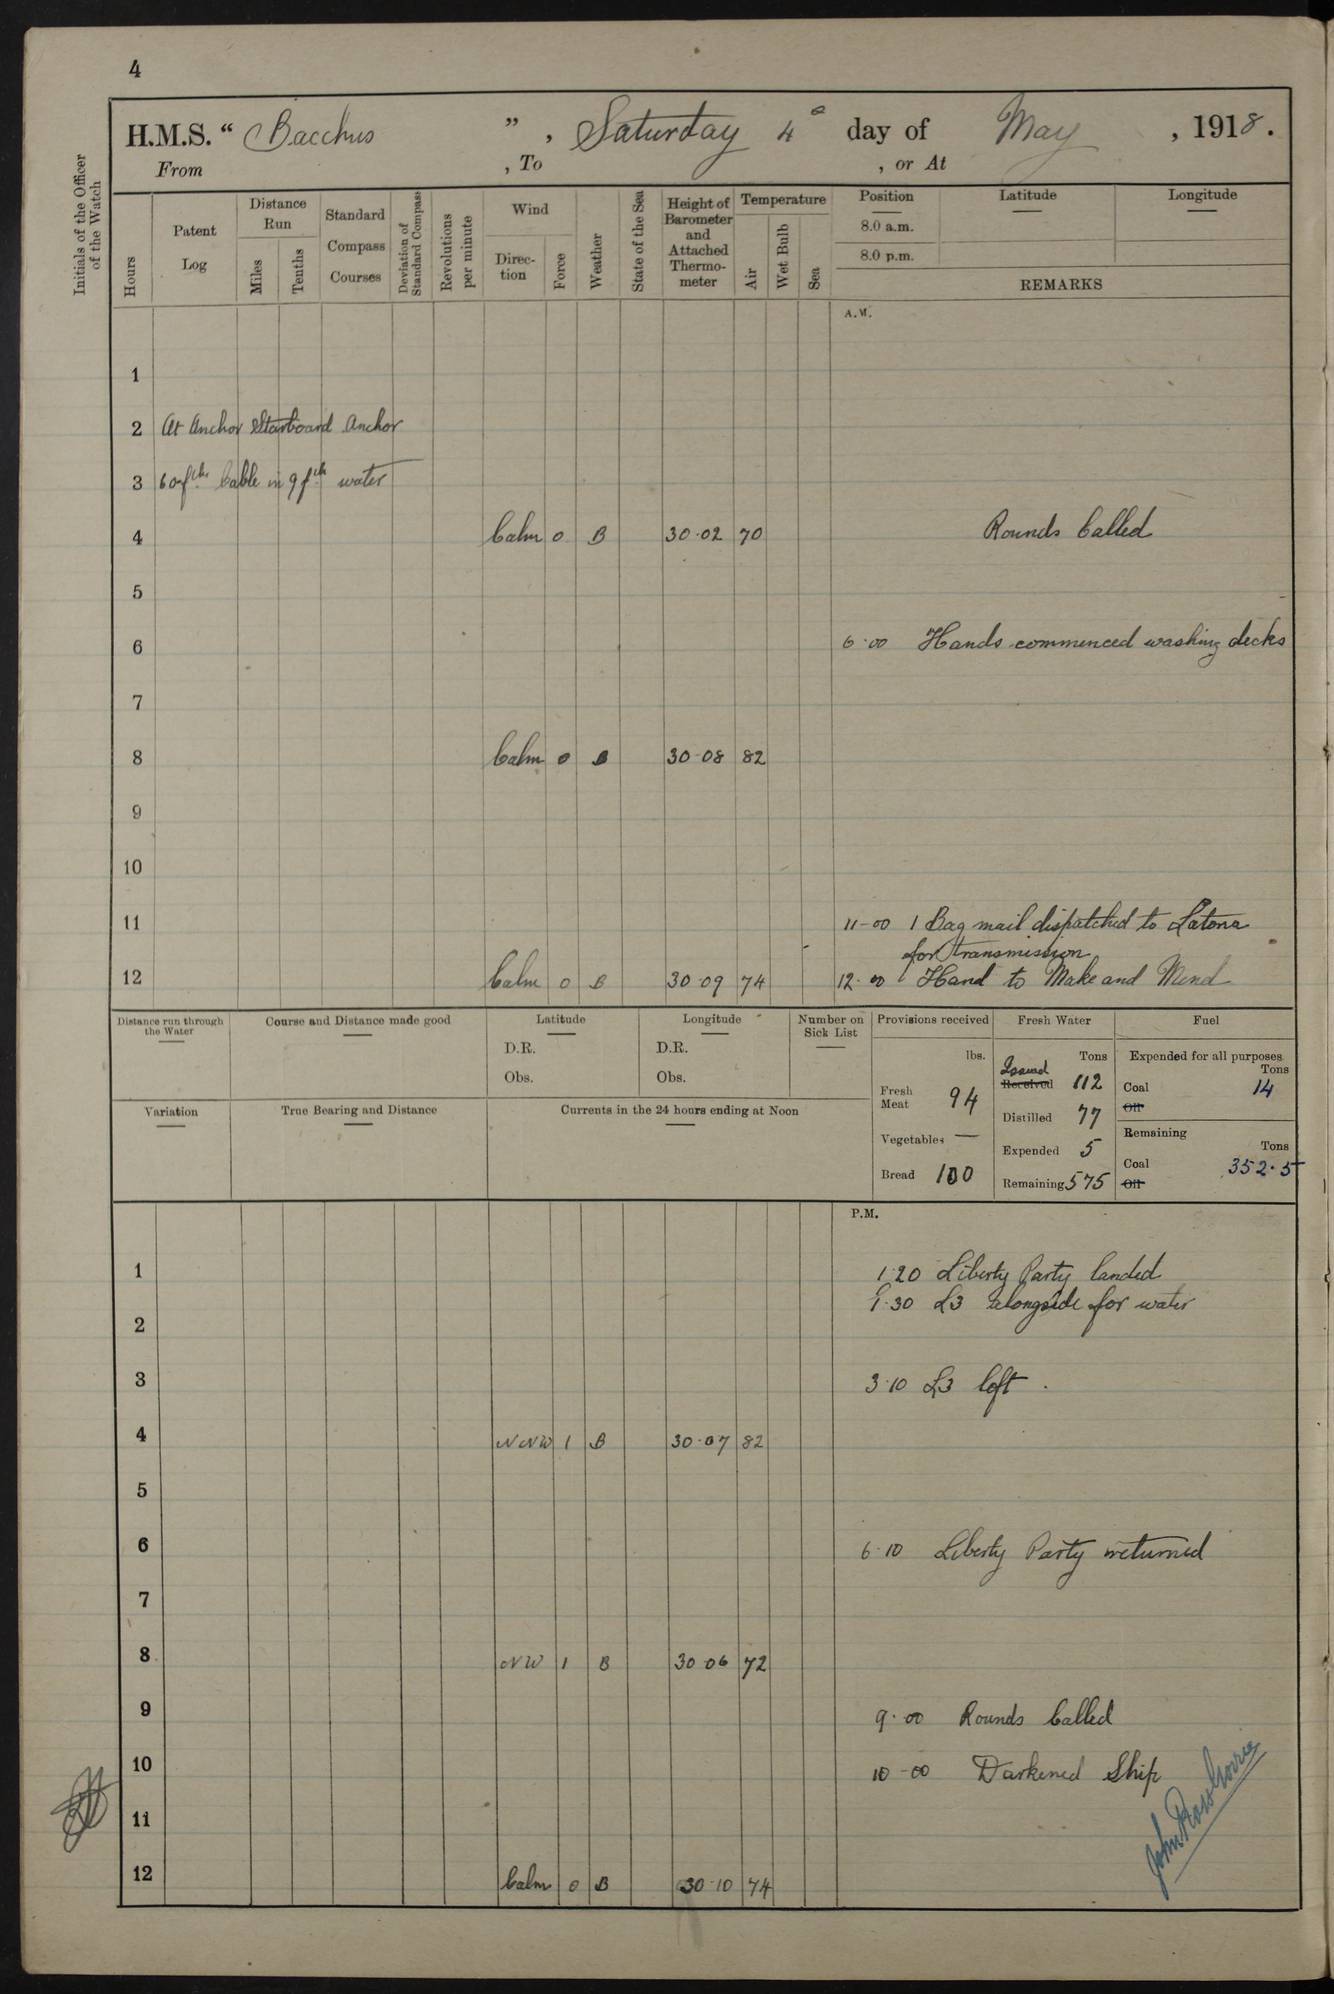 4
H.M.S. “ Bacchus ” , Saturday 4th day of May , 1918 .
From , To , or At
Initials of the Officer of the Watch
Hours
Patent Log
Distance Run
Miles
Tenths
Standard Compass Courses
Deviation of Standard Compass
Revolutions per minute
Wind
Direc-tion
Force
Weather
State of the Sea
Height of Barometer and Attached Thermo-meter
Temperature
Air
Wet Bulb
Sea
Position Latitude Longitude
8.0 a.m.
8.0 p.m.
REMARKS
A.M.
1
2 At Anchor Starboard Anchor
3 60 fths Cable in 9 fth water
4 Calm 0 B 30·02 70 Rounds Called
5
6 6·00 Hands commenced washing decks
7
8 Calm 0 B 30·08 82
9
10
11 11-00 1 Bag mail dispatched to Latona
for transmission
12 Calm 0 B 30·09 74 12·00 Hand to Make and Mend
Distance run through the Water
Course and Distance made good
Latitude
D.R.
Obs.
Longitude
D.R.
Obs.
Number on Sick List
Variation
True Bearing and Distance
Currents in the 24 hours ending at Noon
Provisions received
lbs.
Fresh Meat 94
Vegetables —
Bread 100
Fresh Water
Tons
Issued
Received 112
Distilled 77
Expended 5
Remaining 575
Fuel
Expended for all purposes
Tons
Coal 14
Oil
Remaining
Tons
Coal 352·5
Oil
P.M.
1 1·20 Liberty Party landed
1·30 L3 alongside for water
2
3 3·10 L3 left .
4 NNW 1 B 30·07 82
5
6 6·10 Liberty Party returned
7
8 NW 1 B 30·06 72
9 9·00 Rounds Called
10 10-00 Darkened Ship
11
12 Calm 0 B 30·10 74